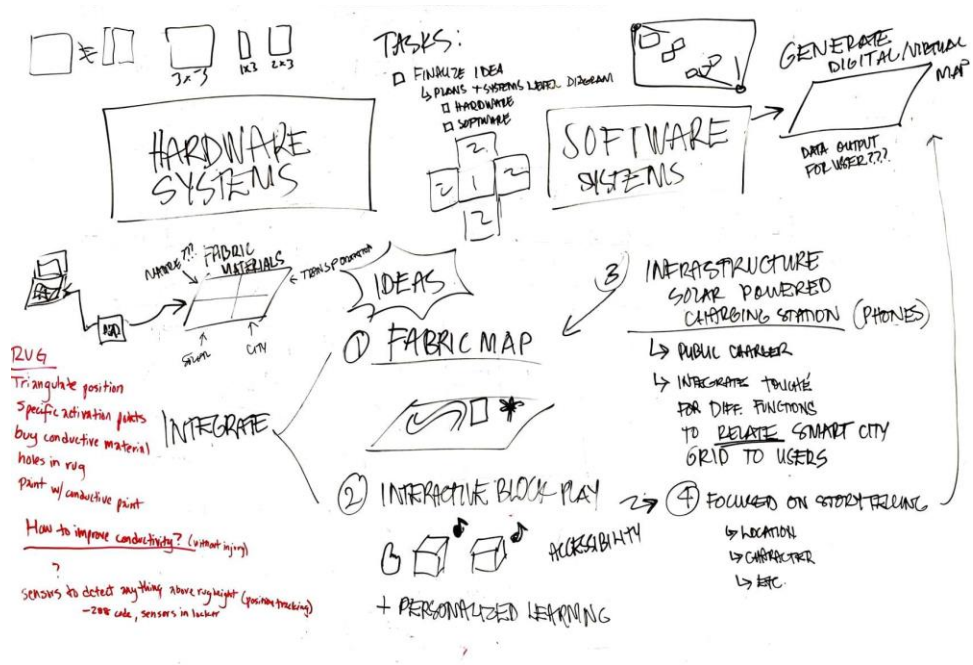 3x3
1x3
2x3
TASKS:
FINALIZE IDEA
↳ PLANS + SYSTEMS LEVEL DIAGRAM
HARDWARE
SOFTWARE
GENERATE
DIGITAL/VIRTUAL
MAP
DATA OUTPUT
FOR USER???
HARDWARE
SYSTEMS
2
2 1 2
2
SOFTWARE
SYSTEMS
NATURE???
FABRIC
MATERIALS
TRANSPORTATION
SOLAR
CITY
IDEAS
① FABRIC MAP
INTEGRATE
② INTERACTIVE BLOCK PLAY
ACCESSIBILITY
+ PERSONALIZED LEARNING
③ INFRASTRUCTURE
SOLAR POWERED
CHARGING STATION (PHONES)
↳ PUBLIC CHARGER
↳ INTEGRATE TOUCHÉ
FOR DIFF. FUNCTIONS
TO RELATE SMART CITY
GRID TO USERS
④ FOCUSED ON STORYTELLING
↳ LOCATION
↳ CHARACTER
↳ ETC.
RUG
Triangulate position
Specific activation points
buy conductive material
holes in rug
paint w/ conductive paint
How to improve conductivity? (without injury)
?
sensors to detect anything above rug height (position tracking)
code, sensors in locker